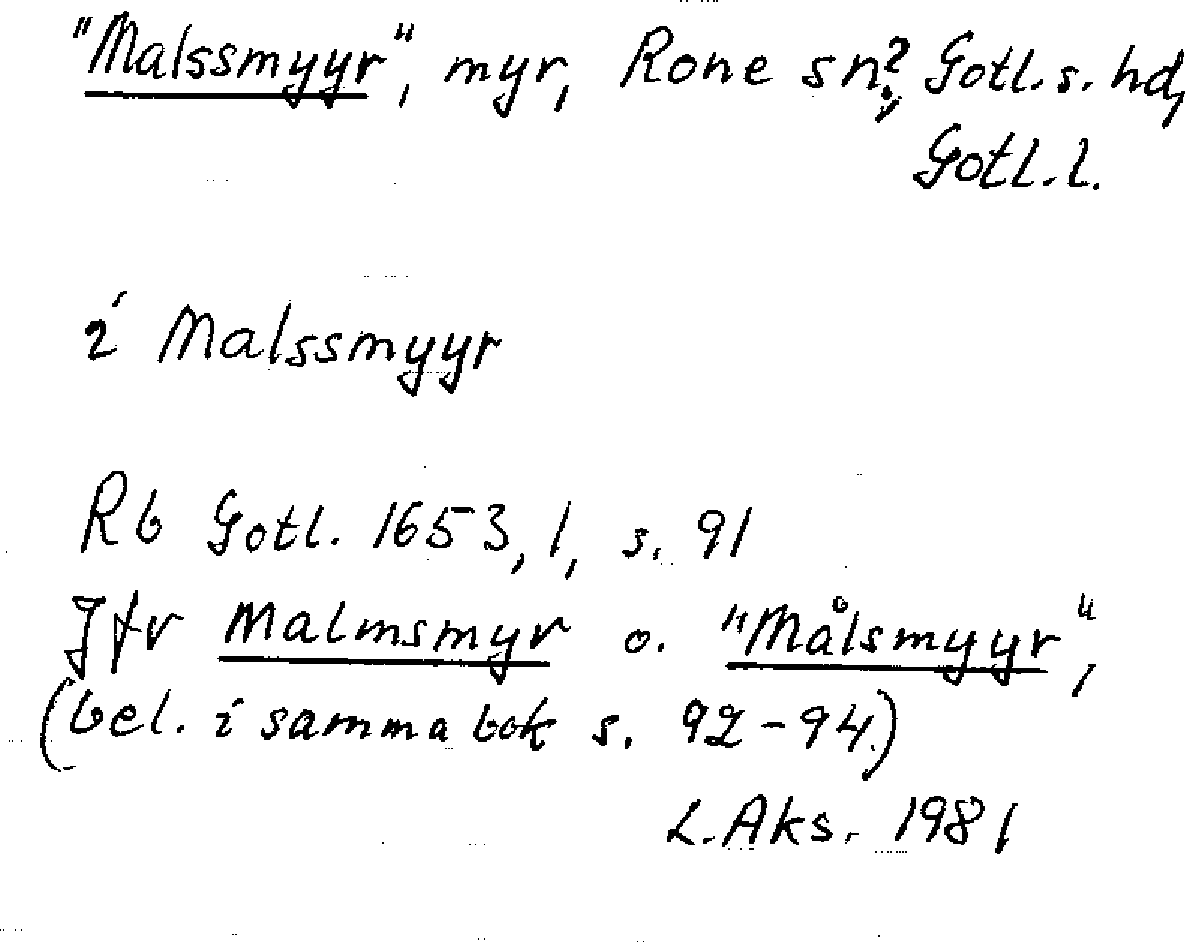 "Malssmyyr", myr, Rone sn?, Gotl. s. hd,
Gotl. l.
i Malssmyyr
Rb Gotl. 1653, 1, s. 91
Jfr Malmsmyr o. "Målsmyyr",
(bel. i samma bok s. 92-94.)
L. Aks. 1981